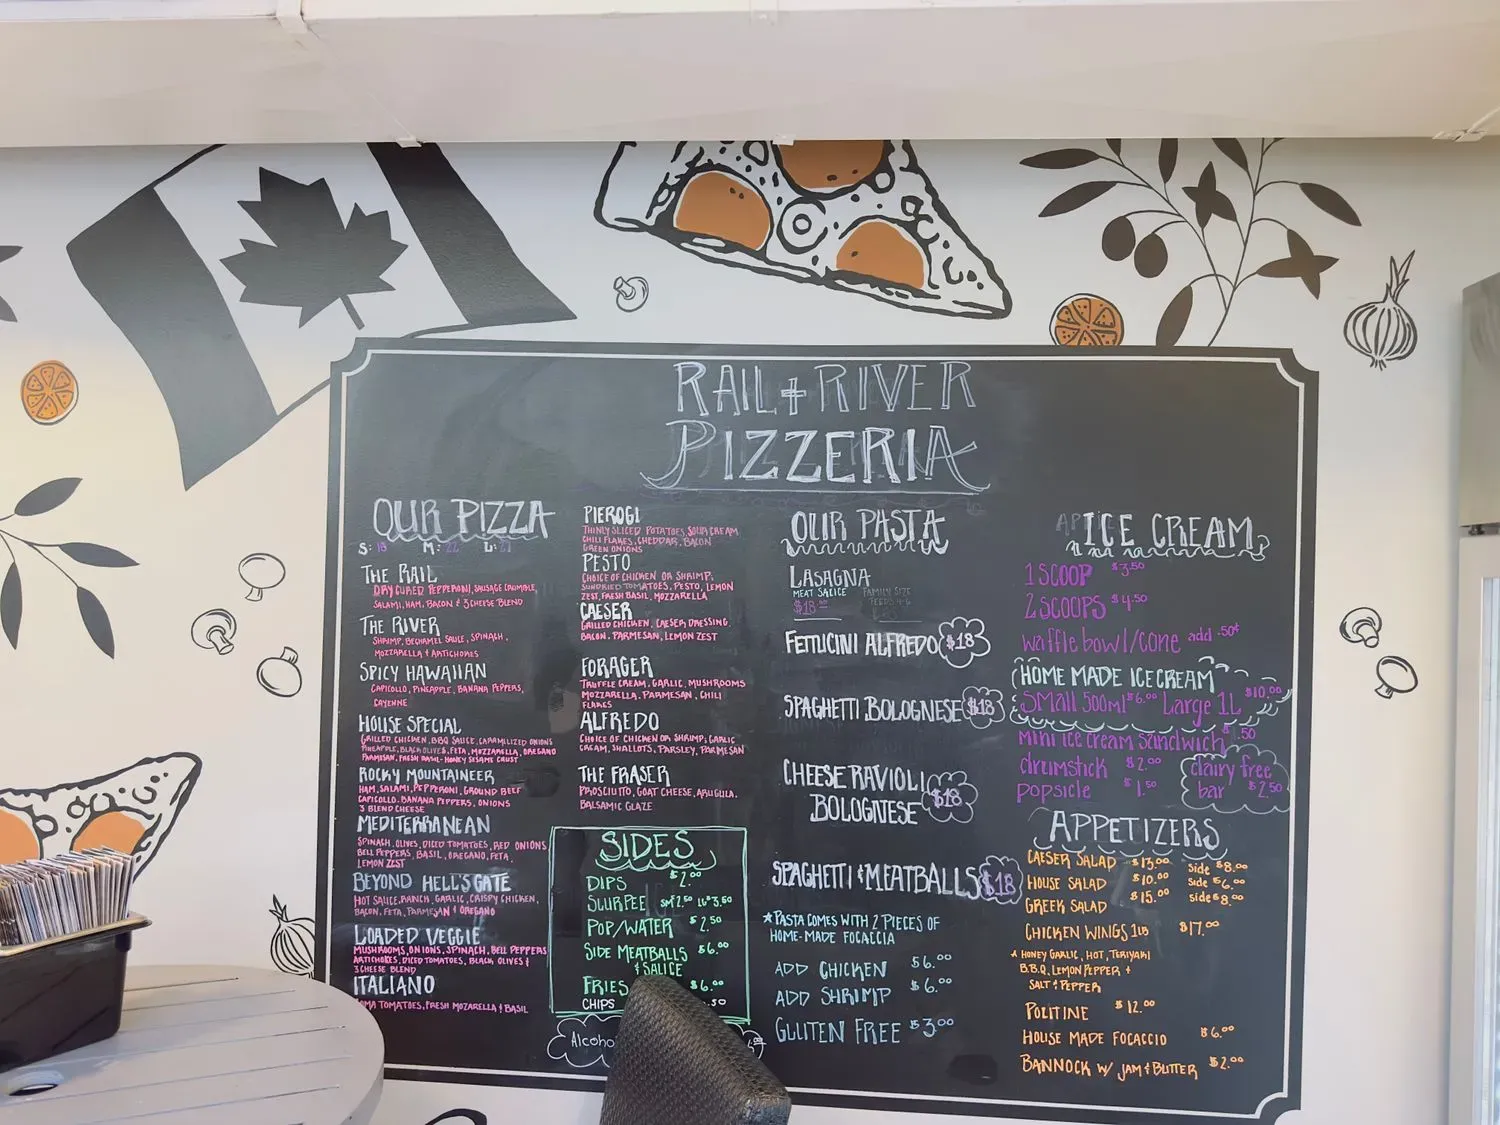 RAIL + RIVER
PIZZERIA
OUR PIZZA
S: 18 M: 22 L: 27
THE RAIL
DRY CURED PEPPERONI, SAUSAGE CRUMBLE,
SALAMI, HAM, BACON & 3 CHEESE BLEND
THE RIVER
SHRIMP, BECHAMEL SAUCE, SPINACH,
MOZZARELLA & ARTICHOKES
SPICY HAWAIIAN
CAPICOLLO, PINEAPPLE, BANANA PEPPERS,
CAYENNE
HOUSE SPECIAL
GRILLED CHICKEN, BBQ SAUCE, CARAMELIZED ONIONS
PINEAPPLE, BLACK OLIVES, FETA, MOZZARELLA, OREGANO
PARMESAN, FRESH BASIL - HONEY SESAME CRUST
ROCKY MOUNTAINEER
HAM, SALAMI, PEPPERONI, GROUND BEEF
CAPICOLLO, BANANA PEPPERS, ONIONS
3 BLEND CHEESE
MEDITERRANEAN
SPINACH, OLIVES, DICED TOMATOES, RED ONIONS
BELL PEPPERS, BASIL, OREGANO, FETA,
LEMON ZEST
BEYOND HELL'S GATE
HOT SAUCE, RANCH, GARLIC, CRISPY CHICKEN,
BACON, FETA, PARMESAN & OREGANO
LOADED VEGGIE
MUSHROOMS, ONIONS, SPINACH, BELL PEPPERS
ARTICHOKES, DICED TOMATOES, BLACK OLIVES &
3 CHEESE BLEND
ITALIANO
TOMATOES, FRESH MOZARELLA & BASIL
PIEROGI
THINLY SLICED POTATOES, SOUR CREAM
CHILI FLAKES, CHEDDAR, BACON
GREEN ONIONS
PESTO
CHOICE OF CHICKEN OR SHRIMP;
SUNDRIED TOMATOES, PESTO, LEMON
ZEST, FRESH BASIL, MOZZARELLA
CAESER
GRILLED CHICKEN, CAESER DRESSING,
BACON, PARMESAN, LEMON ZEST
FORAGER
TRUFFLE CREAM, GARLIC, MUSHROOMS
MOZZARELLA, PARMESAN, CHILI
FLAKES
ALFREDO
CHOICE OF CHICKEN OR SHRIMP; GARLIC
CREAM, SHALLOTS, PARSLEY, PARMESAN
THE FRASER
PROSCIUTTO, GOAT CHEESE, ARUGULA.
BALSAMIC GLAZE
SIDES
DIPS $2.00
SLURPEE SM $2.50 LG $3.50
POP/WATER $2.50
SIDE MEATBALLS $6.00
& SAUCE
FRIES $6.00
CHIPS .50
OUR PASTA
LASAGNA
MEAT SAUCE FAMILY SIZE
$18.00 FEEDS 4-6
FETTUCINI ALFREDO $18
SPAGHETTI BOLOGNESE $18
CHEESE RAVIOLI
BOLOGNESE $18
SPAGHETTI & MEATBALLS $18
* PASTA COMES WITH 2 PIECES OF
HOME-MADE FOCACCIA
ADD CHICKEN $6.00
ADD SHRIMP $6.00
GLUTEN FREE $3.00
ICE CREAM
1 SCOOP $3.50
2 SCOOPS $4.50
waffle bowl/cone add .50¢
HOME MADE ICE CREAM
Small 500ml $6.00 Large 1L $10.00
mini ice cream sandwich $1.50
drumstick $2.00
popsicle $1.50
dairy free
bar $2.50
APPETIZERS
CAESER SALAD $13.00 side $8.00
HOUSE SALAD $10.00 side $6.00
GREEK SALAD $15.00 side $8.00
CHICKEN WINGS 1LB $17.00
* HONEY GARLIC, HOT, TERIYAKI
B.B.Q, LEMON PEPPER +
SALT & PEPPER
POUTINE $12.00
HOUSE MADE FOCACCIO $6.00
BANNOCK W/ JAM & BUTTER $2.00